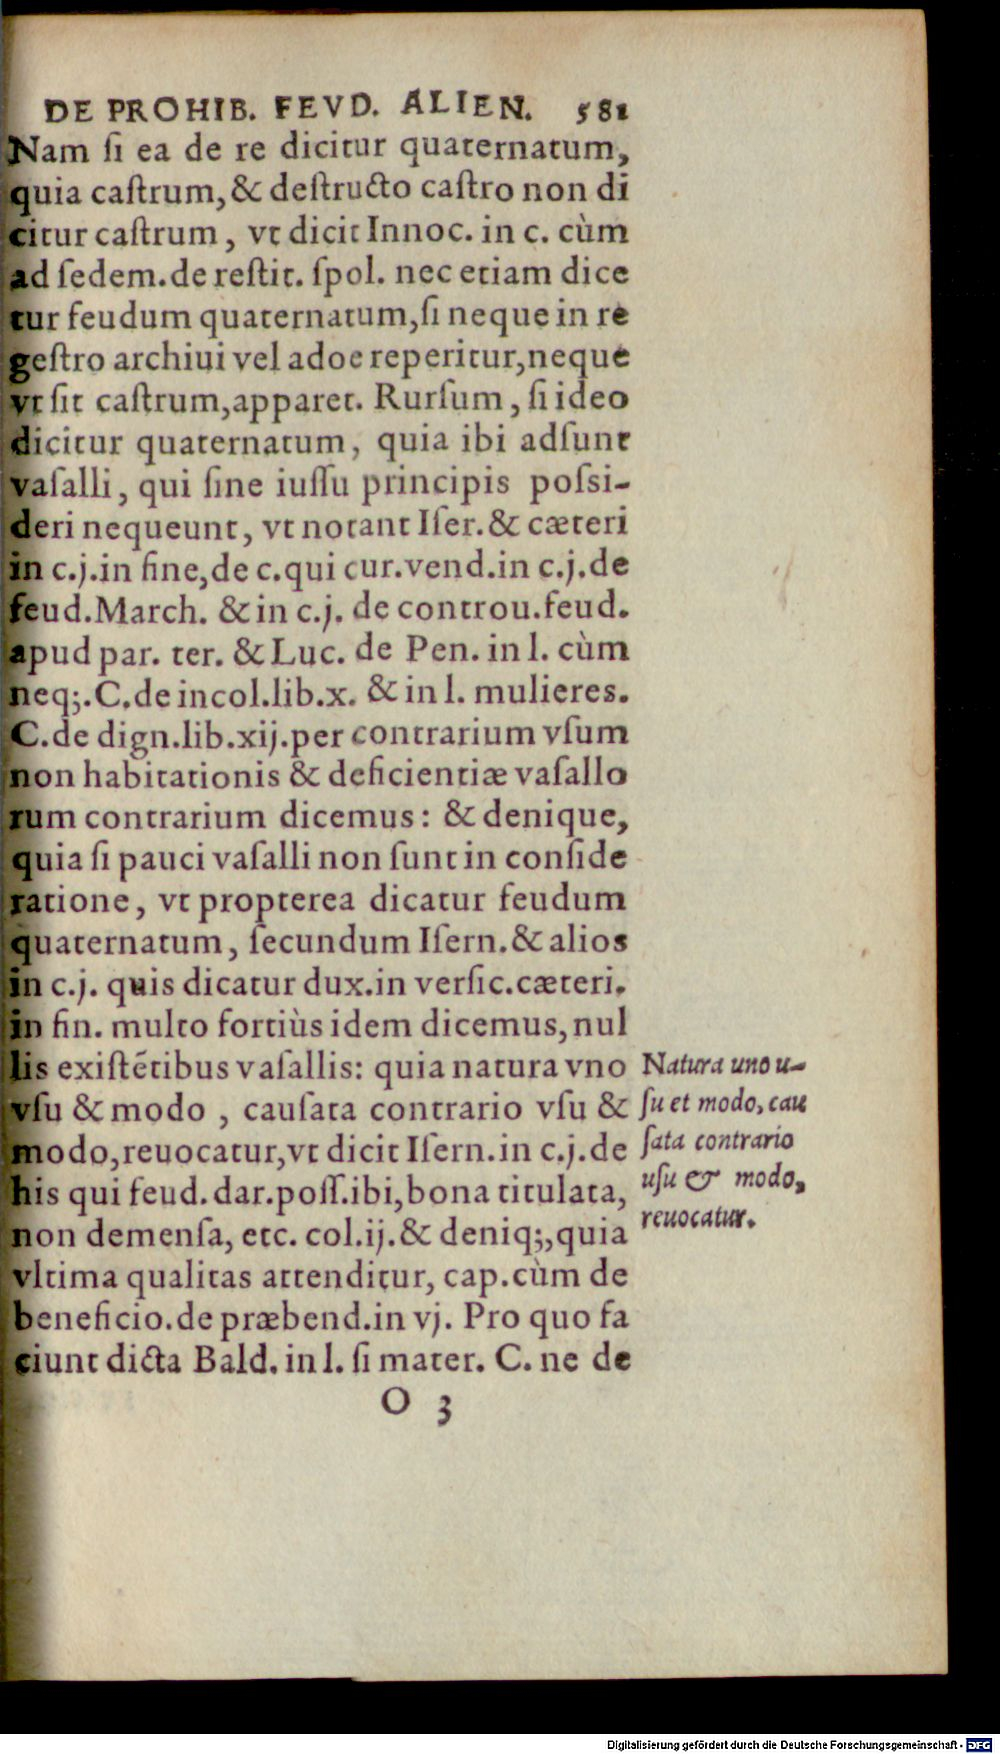 DE PROHIB. FEVD. ALIEN. 581
Nam ſi ea de re dicitur quaternatum,
quia caſtrum, & deſtructo caſtro non di
citur caſtrum, vt dicit Innoc. in c. cùm
ad ſedem. de reſtit. ſpol. nec etiam dice
tur feudum quaternatum, ſi neque in re
geſtro archiui vel adoe reperitur, neque
vt ſit caſtrum, apparet. Rurſum, ſi ideo
dicitur quaternatum, quia ibi adſunt
vaſalli, qui ſine iuſſu principis poſsi-
deri nequeunt, vt notant Iſer. & cæteri
in c.j. in fine, de c. qui cur. vend. in c.j. de
feud. March. & in c.j. de controu. feud.
apud par. ter. & Luc. de Pen. in l. cùm
neq;. C. de incol. lib. x. & in l. mulieres.
C. de dign. lib. xij. per contrarium vſum
non habitationis & deficientiæ vaſallo
rum contrarium dicemus: & denique,
quia ſi pauci vaſalli non ſunt in conſide
ratione, vt propterea dicatur feudum
quaternatum, ſecundum Iſern. & alios
in c.j. quis dicatur dux. in verſic. cæteri.
in fin. multo fortiùs idem dicemus, nul
lis exiſtẽtibus vaſallis: quia natura vno
vſu & modo, cauſata contrario vſu &
modo, reuocatur, vt dicit Iſern. in c.j. de
his qui feud. dar. poſſ. ibi, bona titulata,
non demenſa, etc. col. ij. & deniq;, quia
vltima qualitas attenditur, cap. cùm de
beneficio. de præbend. in vj. Pro quo fa
ciunt dicta Bald. in l. ſi mater. C. ne de
O 3
Natura uno u-
ſu et modo, cau
ſata contrario
uſu & modo,
reuocatur.
Digitalisierung gefördert durch die Deutsche Forschungsgemeinschaft - DFG